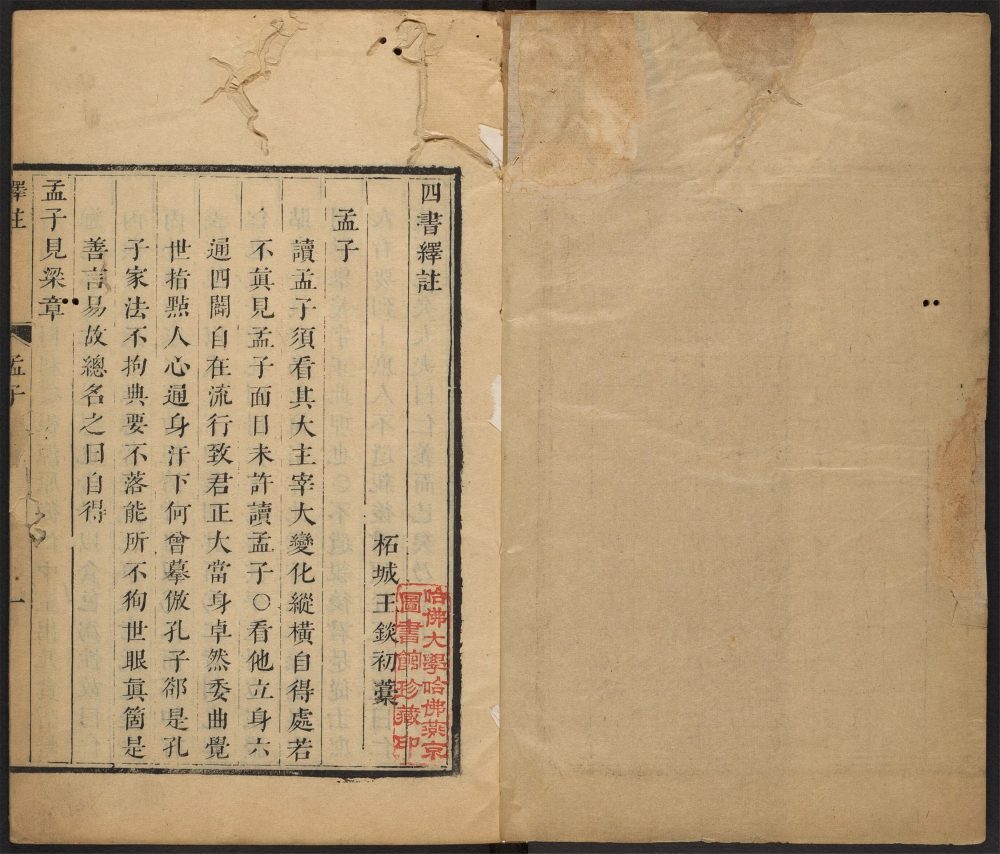 四書繹註
柘城王錟初藳
孟子
讀孟子須看其大主宰大變化縱橫自得處若
不眞見孟子面目未許讀孟子〇看他立身六
通四闢自在流行致君正大當身卓然委曲覺
世指㸃人心通身汗下何曾摹倣孔子郤是孔
子家法不拘典要不落能所不狥世眼眞箇是
善言易故總名之曰自得
孟子見梁章
繹註
孟子
一
哈佛大學哈佛燕京
圖書館珍藏印